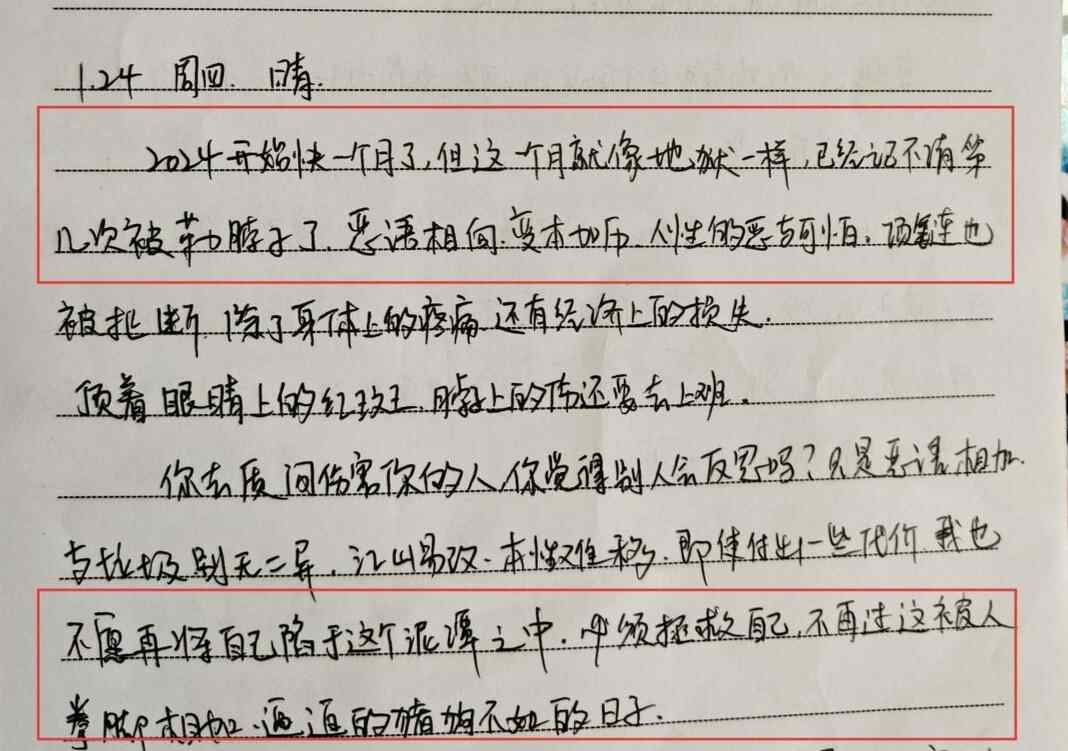 1.24 周四. 日晴.
2024开始快一个月了,但这一个月就像地狱一样,已经记不清第
几次被勒脖子了.恶语相向.变本加历.人性的恶与可怕.项链也
被扯断 除了身体上的疼痛 还有经济上的损失.
顶着眼睛上的红斑 脖子上的伤还要去上班.
你去质问伤害你的人,你觉得别人会反思吗?只是恶语相加.
与垃圾别无二异.江山易改.本性难移.即使付出一些代价 我也
不愿再将自己陷于这个泥潭之中.必须拯救自己,不再过这被人
拳脚相加.逼逼的猪狗不如的日子.